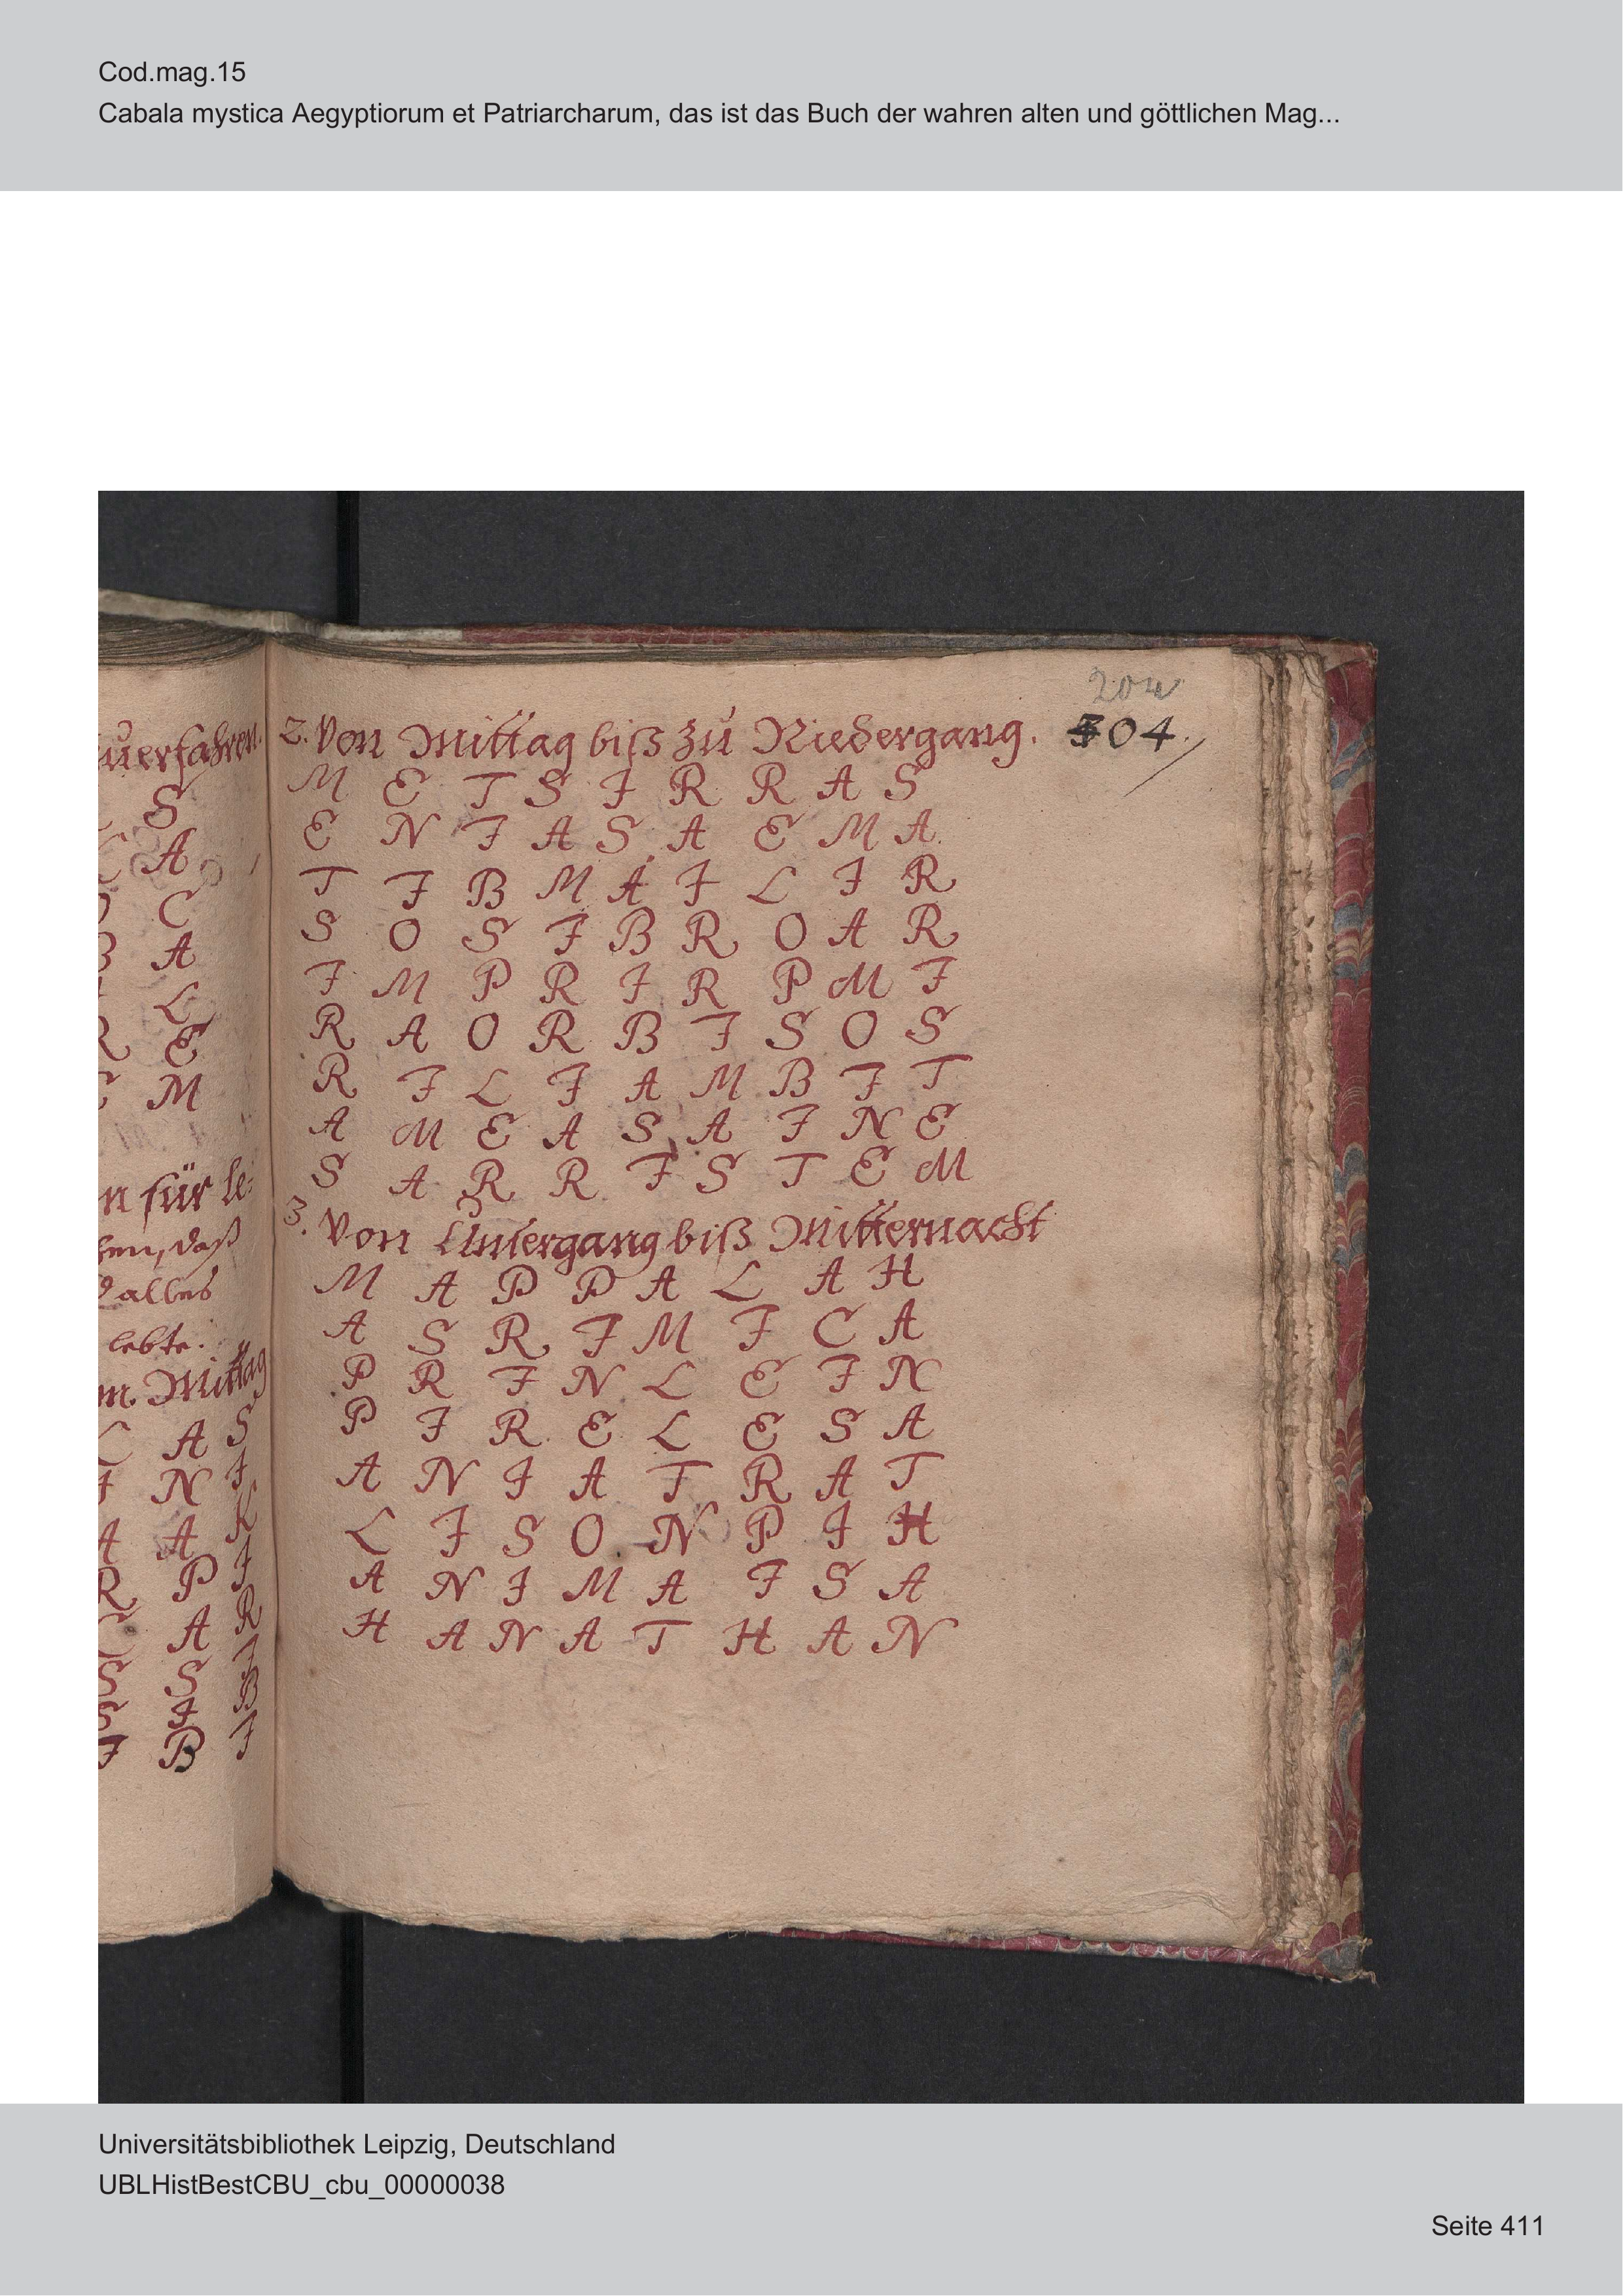 Cod.mag.15
Cabala mystica Aegyptiorum et Patriarcharum, das ist das Buch der wahren alten und göttlichen Mag...
uerfahren.
S
A
C
B A
L
R E
M
n für le=
hen, daß
alles
lebte.
m Mittag
C A S
I N I
A A K
R P I
C A R
S S I
S I B
I B I
204
304.
2. Von Mittag biß zu Niedergang.
M E T S I R R A S
E N I A S A E M A
T I B M A I L I R
S O S I B R O A R
I M P R I R P M I
R A O R B I S O S
R I L I A M B I T
A M E A S A I N E
S A R R I S T E M
3. Von Untergang biß Mitternacht
M A P P A L A H
A S R I M I C A
P R I N L E I N
P I R E L E S A
A N I A T R A T
L I S O N P I H
A N I M A I S A
H A N A T H A N
Universitätsbibliothek Leipzig, Deutschland
UBLHistBestCBU_cbu_00000038
Seite 411